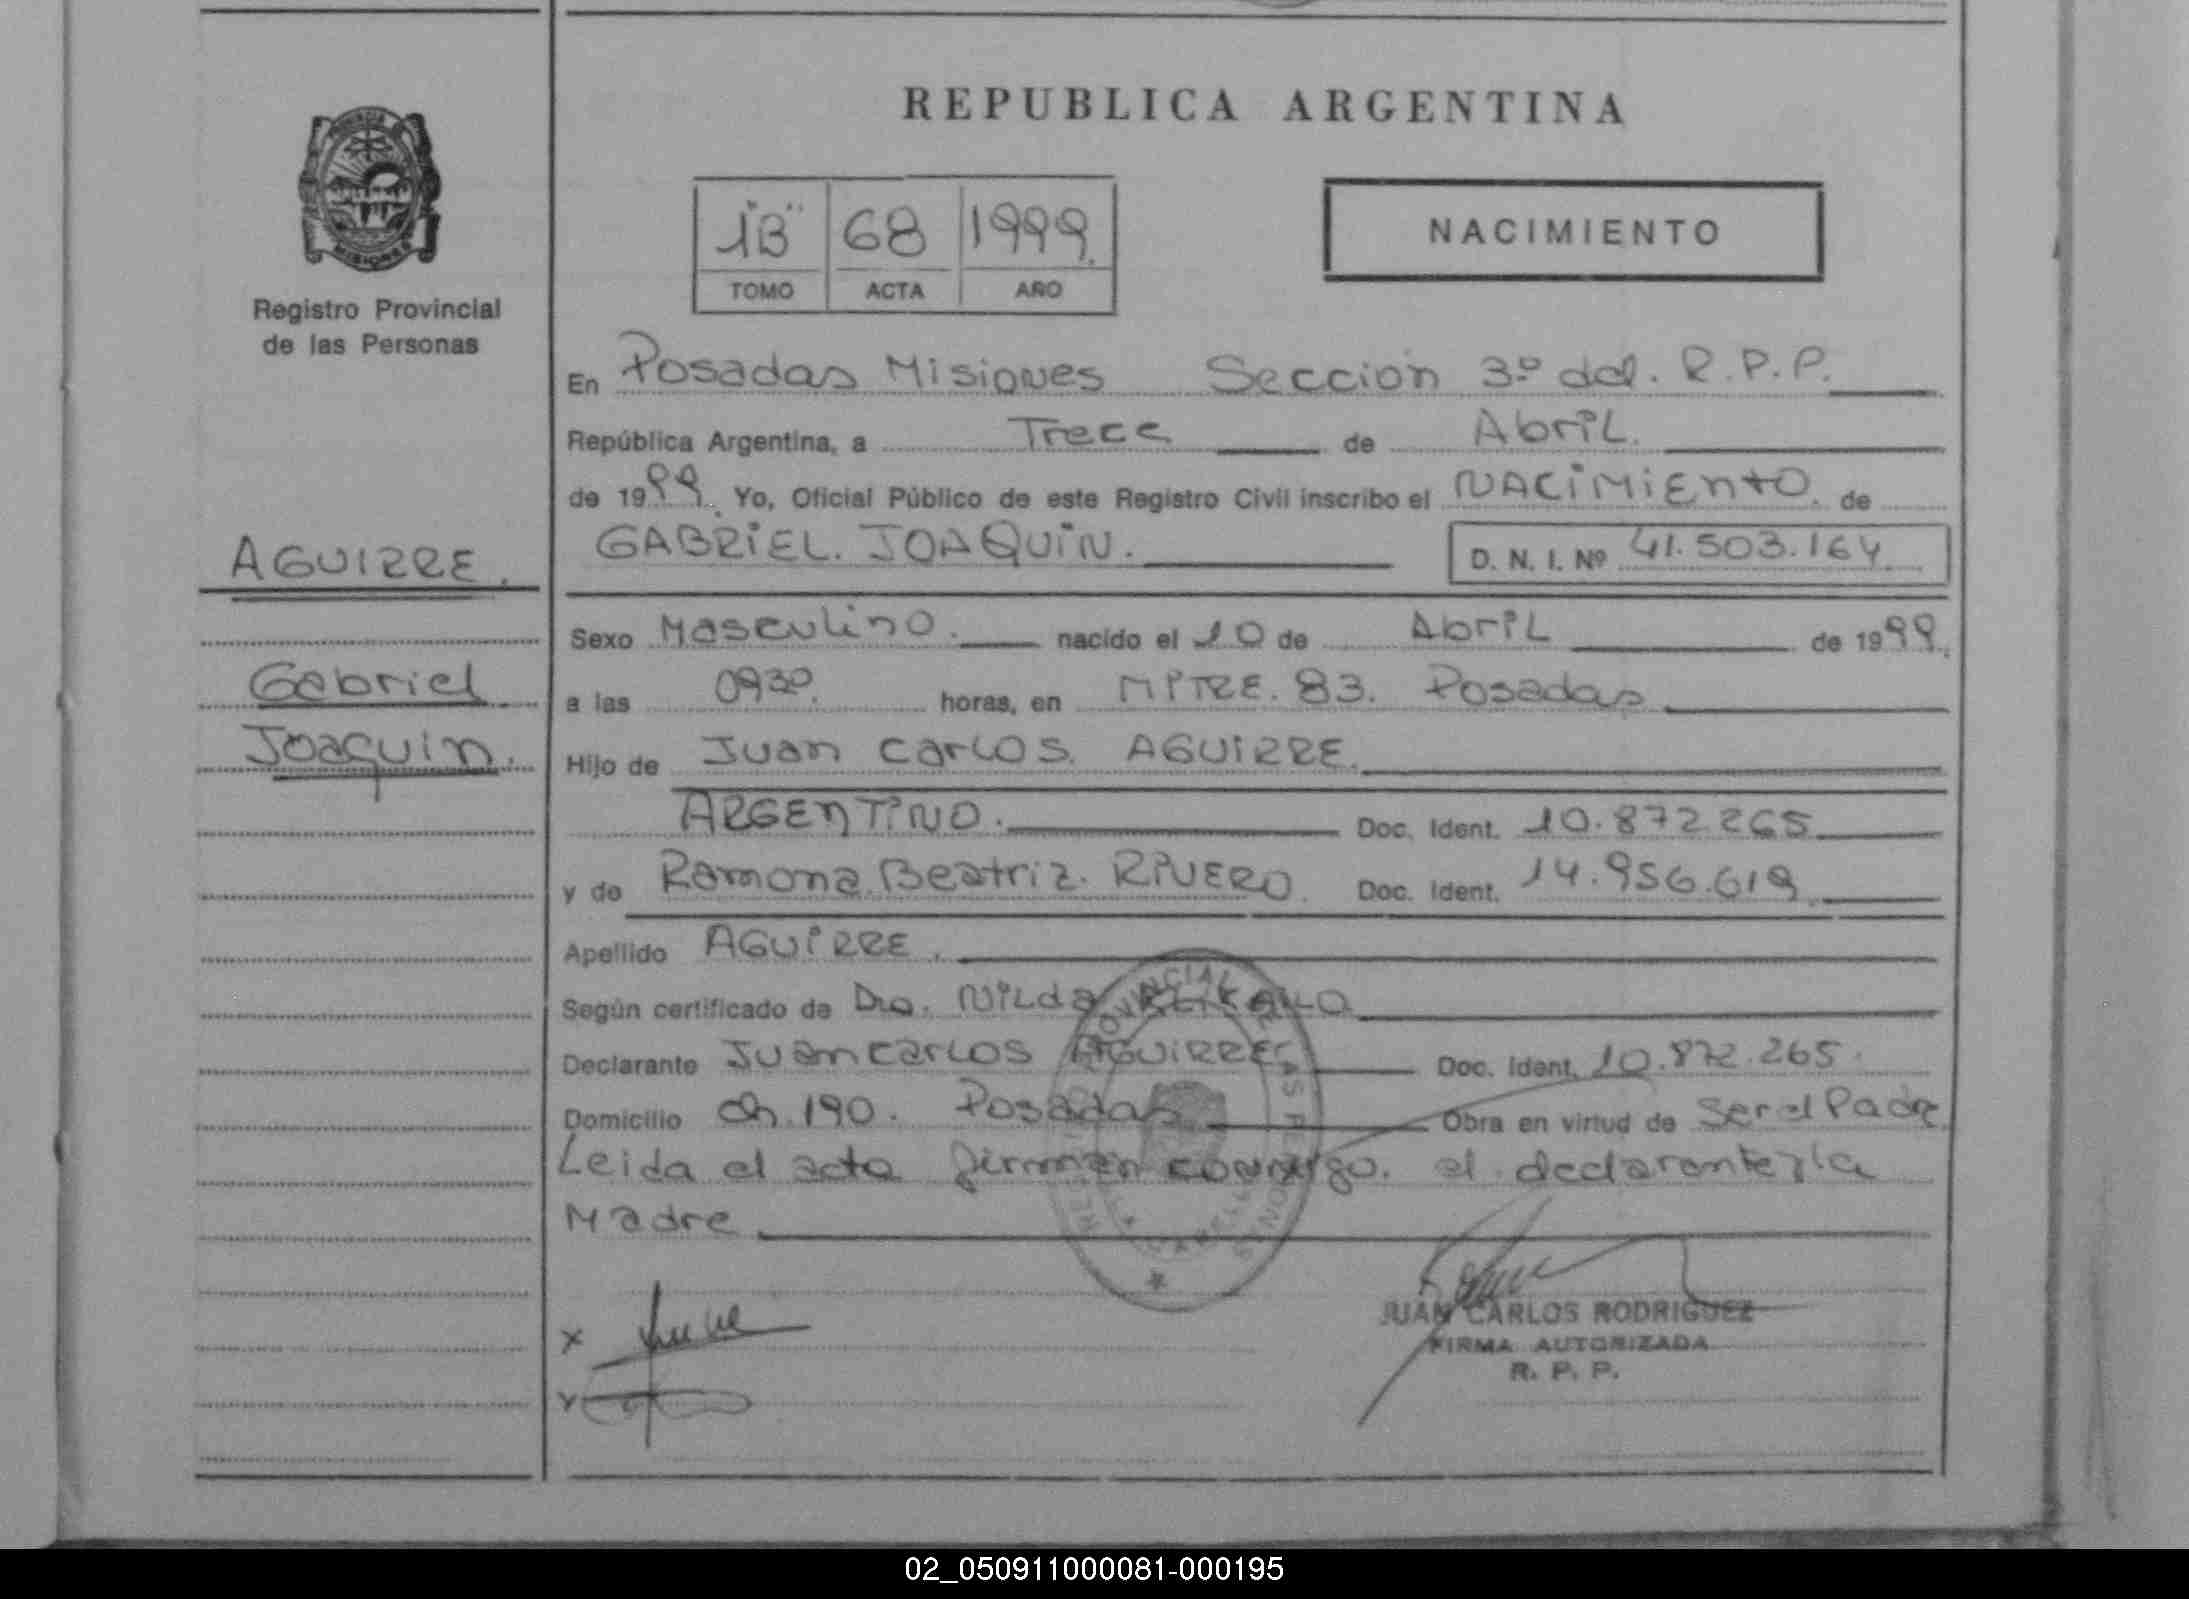 REPUBLICA ARGENTINA
MISIONES
Registro Provincial
de las Personas
1"B" 68 1999.
TOMO ACTA AÑO
NACIMIENTO
En Posadas Misiones Sección 3º del. R.P.P.
República Argentina, a Trece de Abril.
de 1999. Yo, Oficial Público de este Registro Civil inscribo el NACIMIENTO. de
AGUIRRE.
GABRIEL. JOAQUIN. D. N. I. Nº 41.503.164
Sexo Masculino. nacido el 10 de Abril de 1999.
Gabriel
Joaquin.
a las 0930. horas, en MITRE. 83. Posadas
Hijo de Juan Carlos. AGUIRRE.
ARGENTINO. Doc. Ident. 10.872.265
y de Ramona. Beatriz. RIVERO. Doc. Ident. 14.956.619
Apellido AGUIRRE.
Según certificado de Dra. Nilda
Declarante Juan Carlos AGUIRRE Doc. Ident. 10.872.265.
Domicilio Ch. 190. Posadas Obra en virtud de Ser el Padre
Leida el acta firman conmigo. el declarante y la
Madre
JUAN CARLOS RODRIGUEZ
FIRMA AUTORIZADA
R. P. P.
02_050911000081-000195